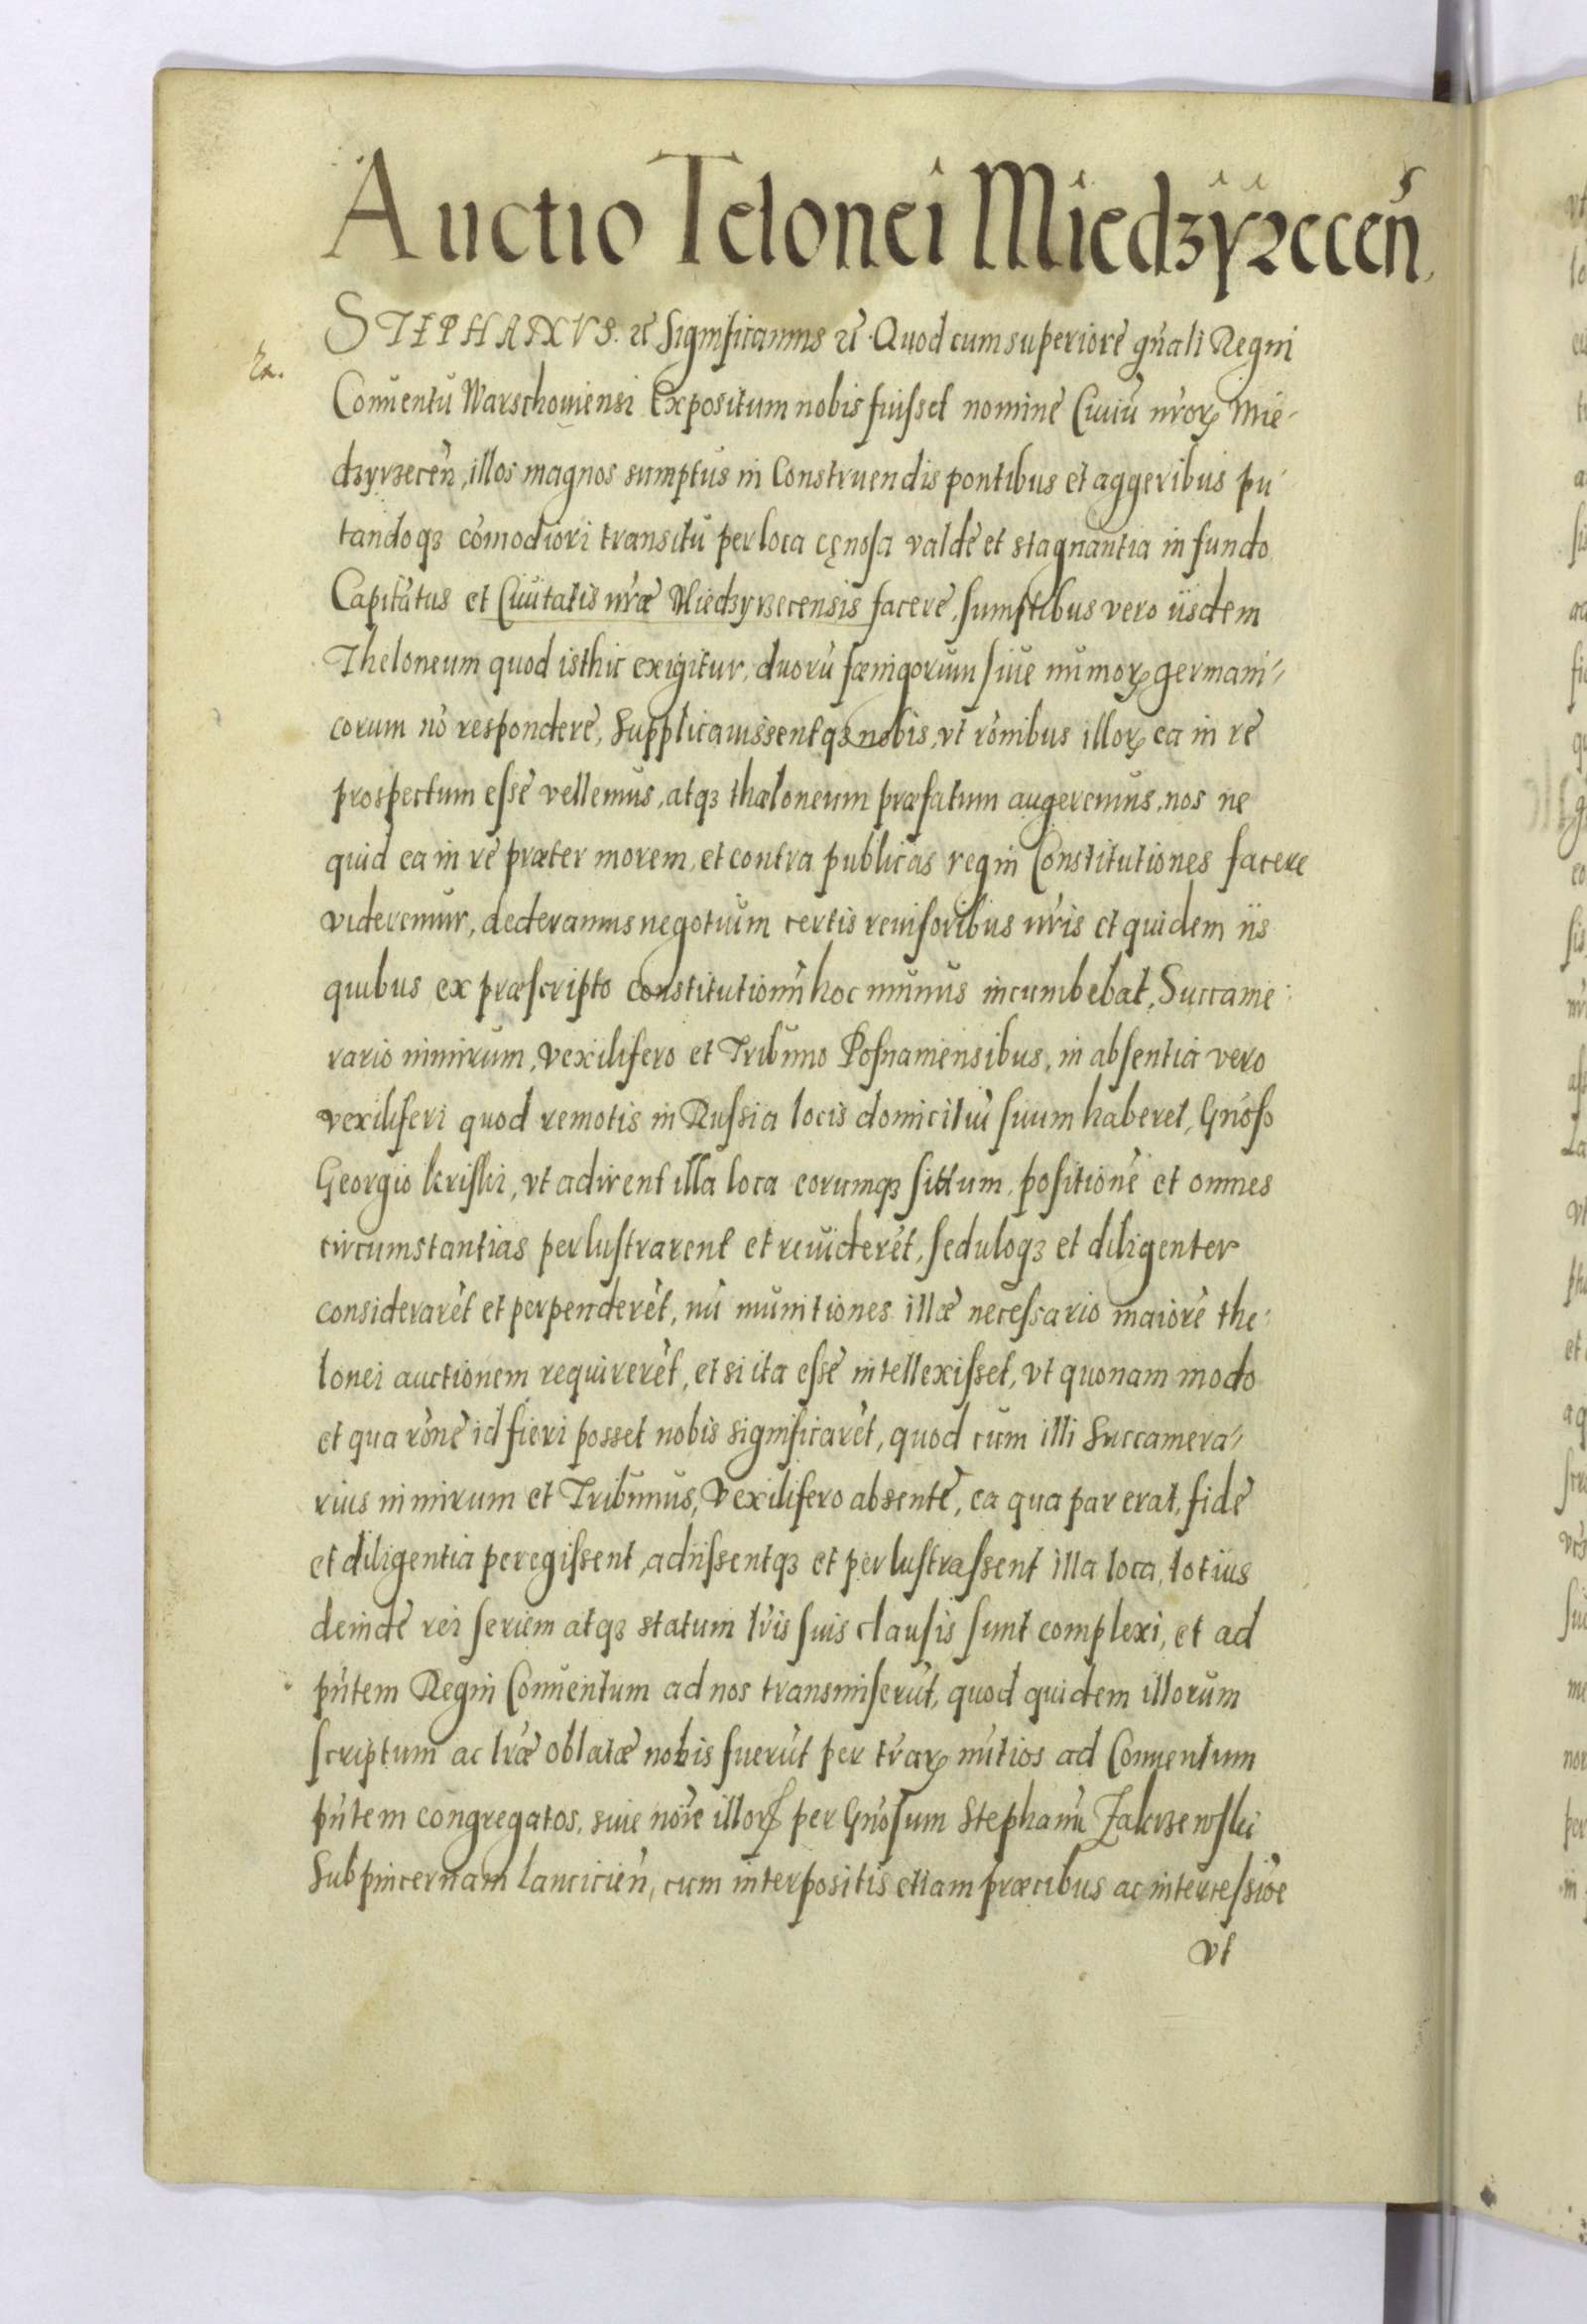 Auctio Telonei Miedzyrecen̄
STEPHANVS. etc̃ Significamus etc̃. Quod cum superiore gñali Regni
Conuentu Warschouiensi Expositum nobis fuisset nomine Ciuiũ nrõrꝝ Mie-
dzyrzeceñ, illos magnos sumptus in Construendis pontibus et aggeribus pu-
tandoqꝫ cõmodiori transitu per loca cęnosa valde et stagnantia in fundo
Capitãtus et Ciuitatis nræ̃ Miedzyrzecensis facere, sumptibus vero iisdem
Theloneum quod isthic exigitur, duorũ fænigorum siue numorꝝ germani-
corum nõ respondere, Supplicauissentqꝫ nobis, vt rõnibus illorꝝ ea in re
prospectum esse vellemus, atqꝫ thæloneum præfatum augeremus, nos ne
quid ea in re præter morem, et contra publicas regni Constitutiones facere
videremur, dederamus negotium certis reuisoribus nr̃is et quidem iis
quibus ex præscripto constitutionũ hoc munus incumbebat, Succame-
rario nimirum, vexilifero et Tribuno Posnaniensibus, in absentia vero
vexiliferi quod remotis in Russia locis domiciliũ suum haberet, Gnõso
Georgio Kriski, vt adirent illa loca eorumqꝫ sittum, positionẽ et omnes
circumstantias perlustrarent et reuiderẽt, seduloqꝫ et diligenter
considerarẽt et perpenderẽt, nũ munitiones illæ necessario maiorẽ the-
lonei auctionem requirerẽt, et si ita esse intellexisset, vt quonam modo
et qua rõne id fieri posset nobis significarẽt, quod cum illi Succamera-
rius nimirum et Tribunus, Vexilifero absente, ea qua par erat, fide
et diligentia peregissent, adiissentqꝫ et perlustrassent illa loca, totius
deinde rei seriem atqꝫ statum lr̃is suis clausis sunt complexi, et ad
pñtem Regni Conuentum ad nos transmiserũt, quod quidem illorum
scriptum ac lræ̃ oblatæ nobis fuerũt per tr̃arꝝ nũtios ad Conuentum
pñtem congregatos, siue nõie illorꝝ per Gnõsum Stephanũ Zakrzewski
Subpincernam Lanciciẽn, cum interpositis etiam præcibus ac intercessiõe
vt